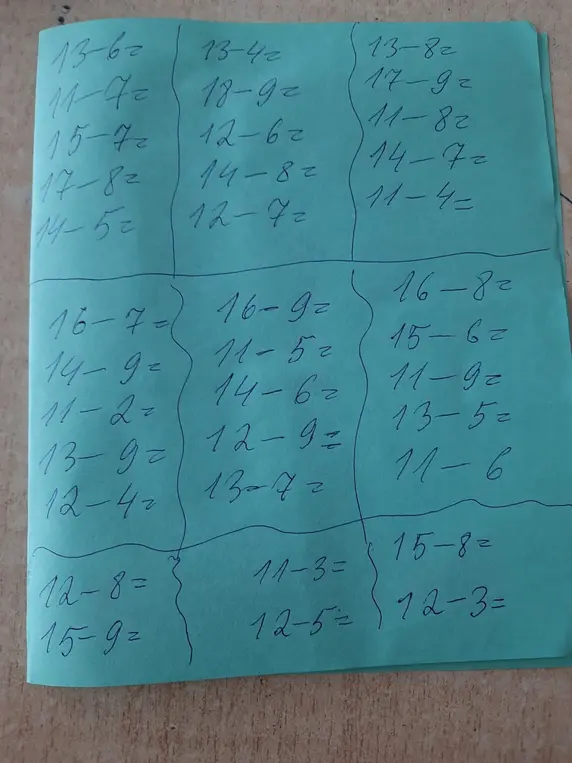 13-6=
11-7=
15-7=
17-8=
14-5=
13-4=
18-9=
12-6=
14-8=
12-7=
13-8=
17-9=
11-8=
14-7=
11-4=
16-7=
14-9=
11-2=
13-9=
12-4=
16-9=
11-5=
14-6=
12-9=
13-7=
16-8=
15-6=
11-9=
13-5=
11-6
12-8=
15-9=
11-3=
12-5=
15-8=
12-3=